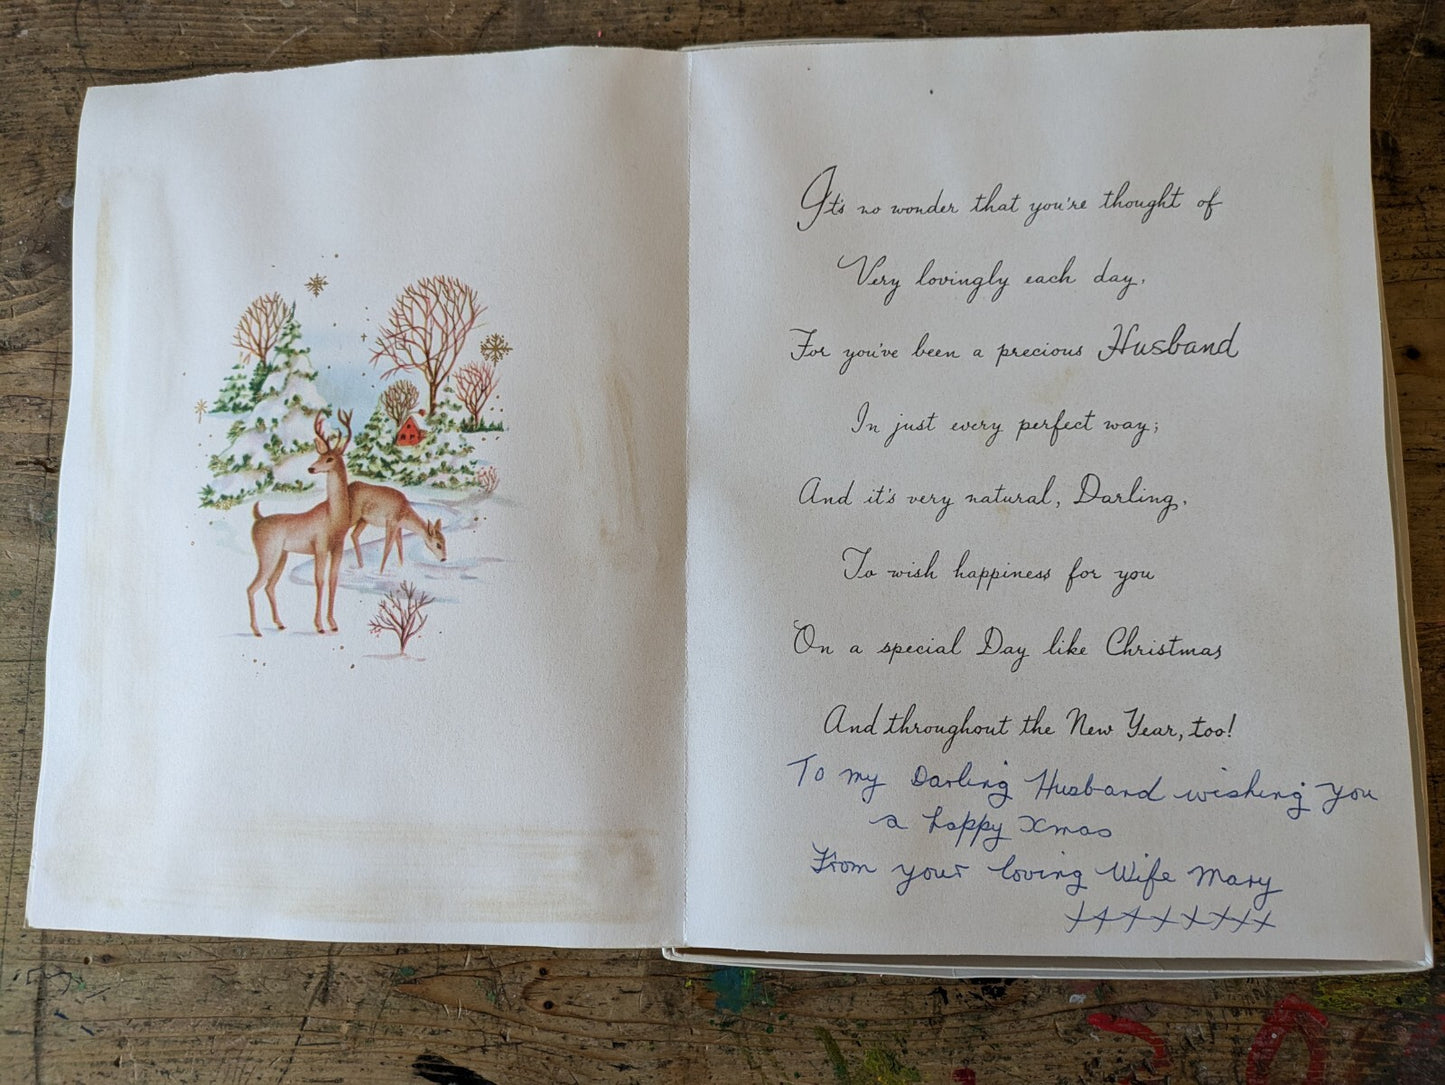 It's no wonder that you're thought of
Very lovingly each day,
For you've been a precious Husband
In just every perfect way;
And it's very natural, Darling,
To wish happiness for you
On a special Day like Christmas
And throughout the New Year, too!
To my Darling Husband wishing you
a happy Xmas
From your loving Wife Mary
xxxxxxxx